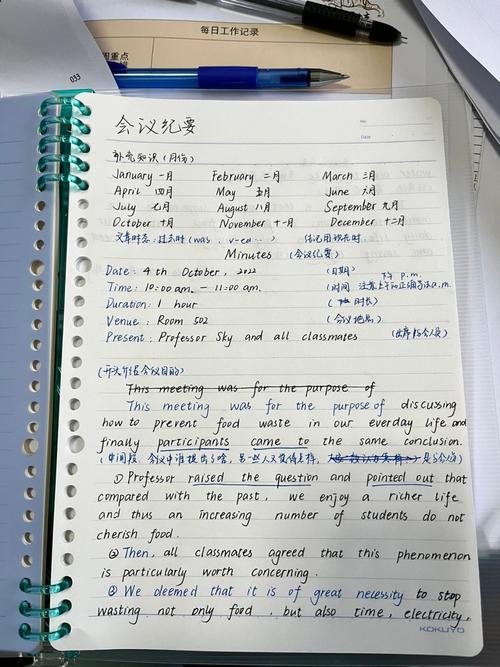 每日工作记录
周重点
033
No.
Date
会议纪要
补充知识(月份)
January 一月 February 二月 March 三月
April 四月 May 五月 June 六月
July 七月 August 八月 September 九月
October 十月 November 十一月 December 十二月
文章时态:过去时(was、v-ed…)
Minutes (会议纪要)
Date: 4th October, 2022 (日期)
下午 p.m.
Time: 10:00 am. – 11:00 am. (时间,注意上午的正确写法a.m.
Duration: 1 hour (时长)
Venue: Room 502 (会议地点)
Present: Professor Sky and all classmates (出席的人员)
(开头介绍会议目的)
This meeting was for the purpose of
This meeting was for the purpose of discussing
how to prevent food waste in our everyday life and
finally participants came to the same conclusion.
(中间段,会议中谁提出了啥,另一些人又觉得怎样,
① Professor raised the question and pointed out that
compared with the past, we enjoy a richer life
and thus an increasing number of students do not
cherish food.
② Then, all classmates agreed that this phenomenon
is particularly worth concerning.
③ We deemed that it is of great necessity to stop
wasting not only food, but also time, electricity,
KOKUYO